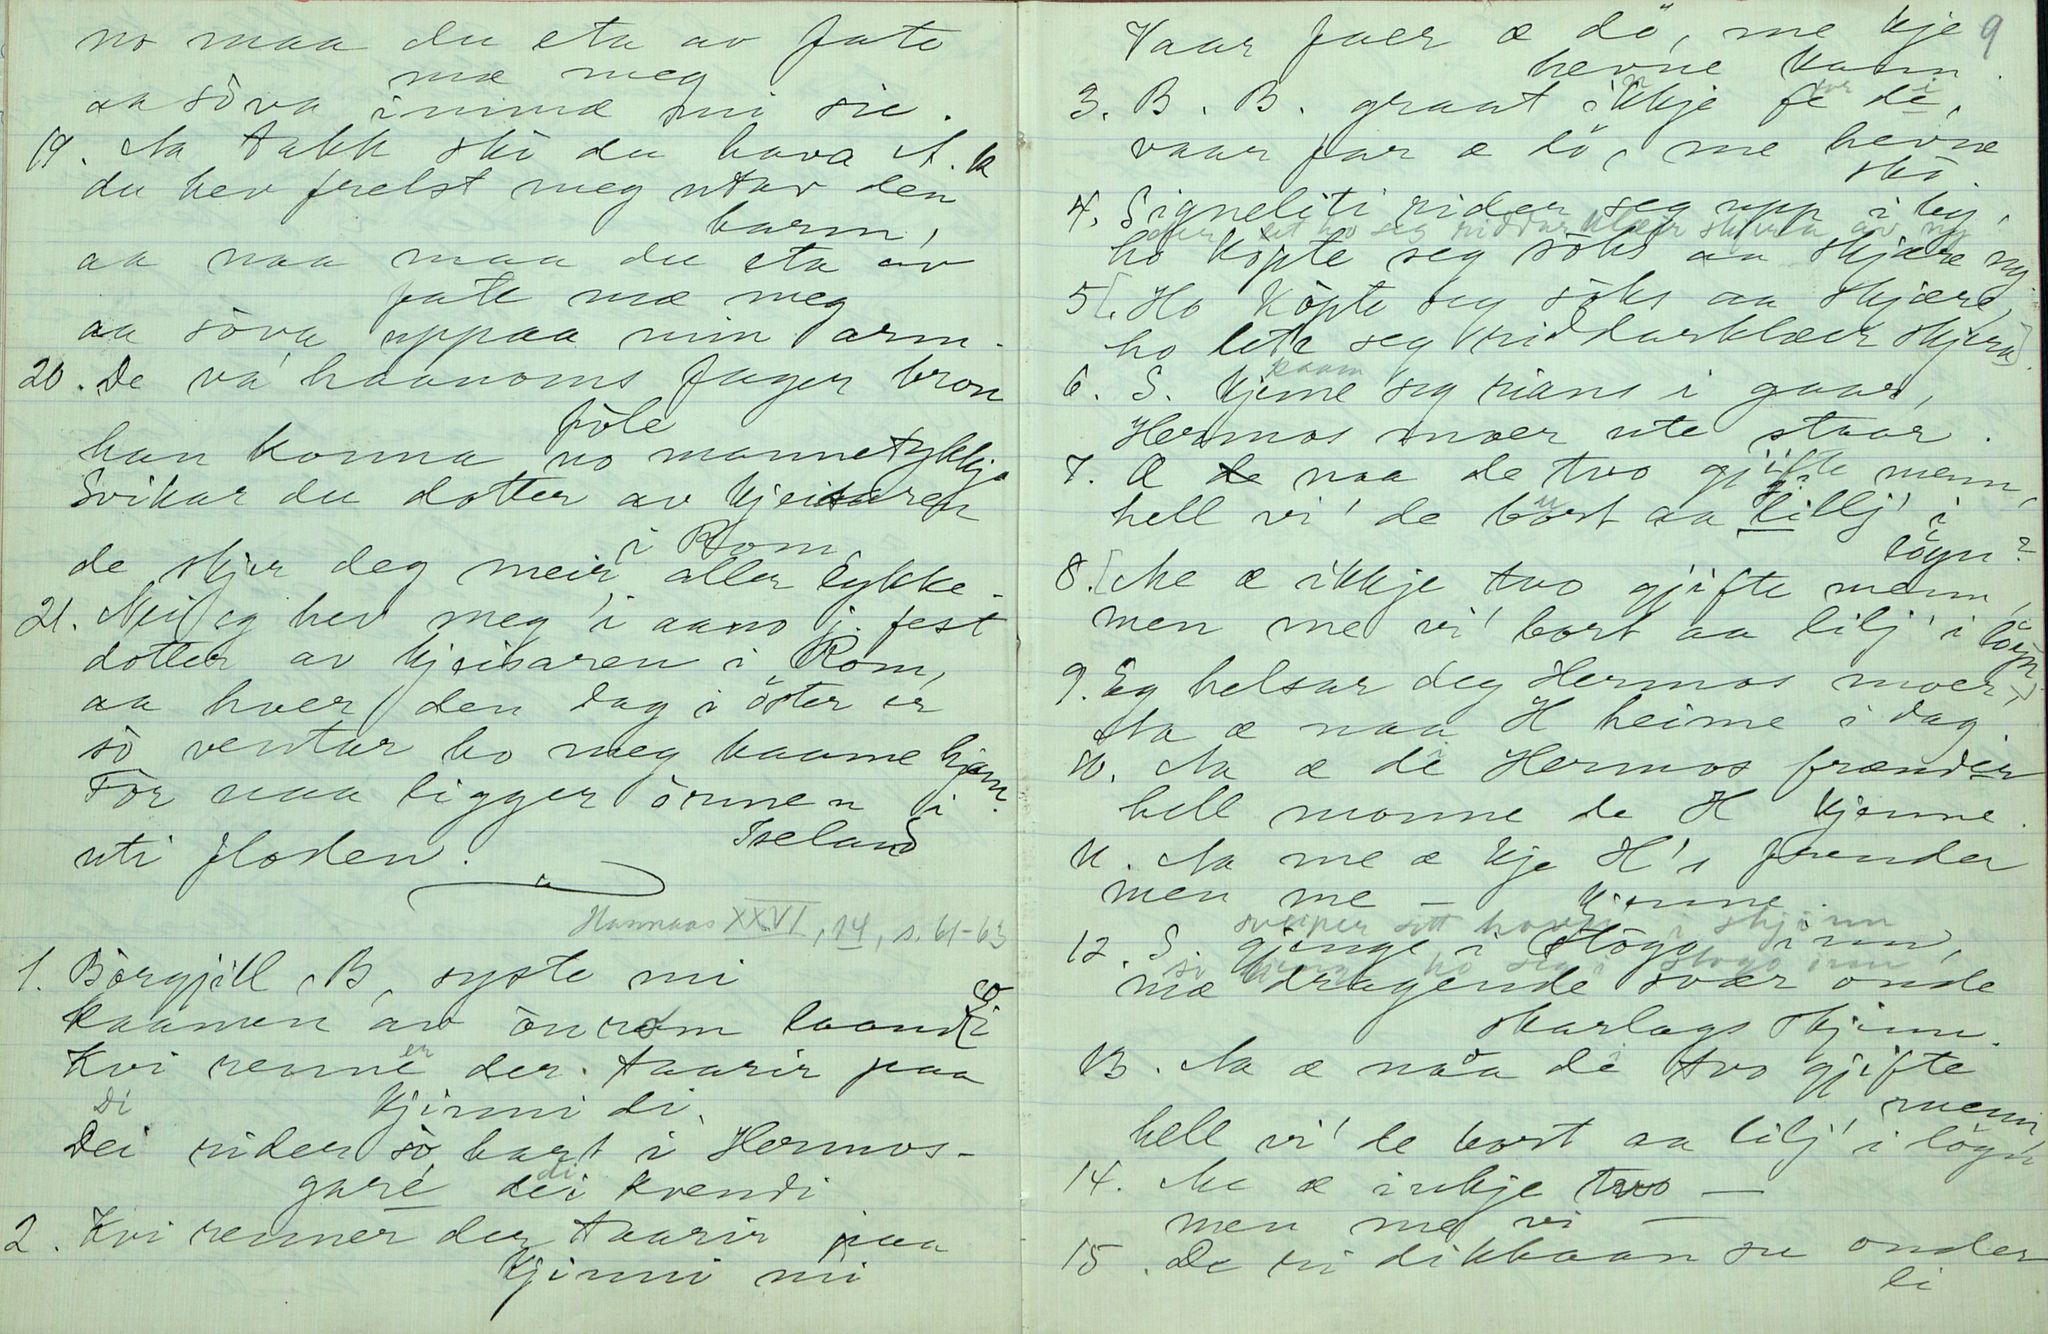 no maa du eta av fate
mæ meg
aa söva innmæ mi sie.
19. Aa takk ska du hava A. k
du hev frelst meg utav den
harm,
aa naa maa du eta av
fate mæ meg
aa söva uppaa min arm.
20. De va haanoms fager bron
föle
han konna no manne tykkja
Svikar du dotter av kjeisaren
i Rom
de skjer deg meir aller lykke.
21. Nei eg hev meg i aano j. fest
dotter av kjeisaren i Rom,
aa hver den dag i öster er
so ventar ho meg kaame hjem.
For naa ligger ormen i
Iseland
uti floden.
Hannaas XXVI, 14, s. 61-63
1. Börgjill, B, syste mi
kaamen av önrom laandi
Kvi renner der taarir paa
kjinni di.
Di
Dei rider so bart i Hermos-
gare dei kvendi
2. Kvi renner der taarir paa
kjinni mi
9
Vaar faer æ dö, me kje
hevne kann.
3. B. B. graat ikkje fe de,
vaar far æ dö, me hevne
ska
4. Signeliti rider seg upp i by,
der let ho seg riddarklæir skjera av ny
ho köpte seg söks aa skjære ny.
5 [. Ho köpte seg söks aa skjære,
ho lete seg riddarklæir skjera].
kaam
6. S. kjeme seg rians i gaar,
Hermos moer ute staar.
7. Æ de naa de two gjifte menn,
hell vi' de bort aa lillj' i
lögn?
8. [Me æ ikkje two gjifte menn,
men me vi' bort aa lilj' i lögn]
9. Eg helsar deg Hermos moer,
Aa æ naa H heime i dag.
10. Aa æ de Hermos frænder
hell monne de H kjenne.
11. Aa me æ kje H's frender
men me — kjenne.
sveiper sitt hovu i skjinn
12. S. gjenge i stogo inn,
so gjeng ho seg i stogo inn
mæ dragende svær onde
skarlags skjinn.
13. Aa æ naa de two gjifte
menn,
hell vi' de bort aa lilj' i lögn
14. Me æ inkje two —
men me vi —
15. De ri dikkaan su onder
li